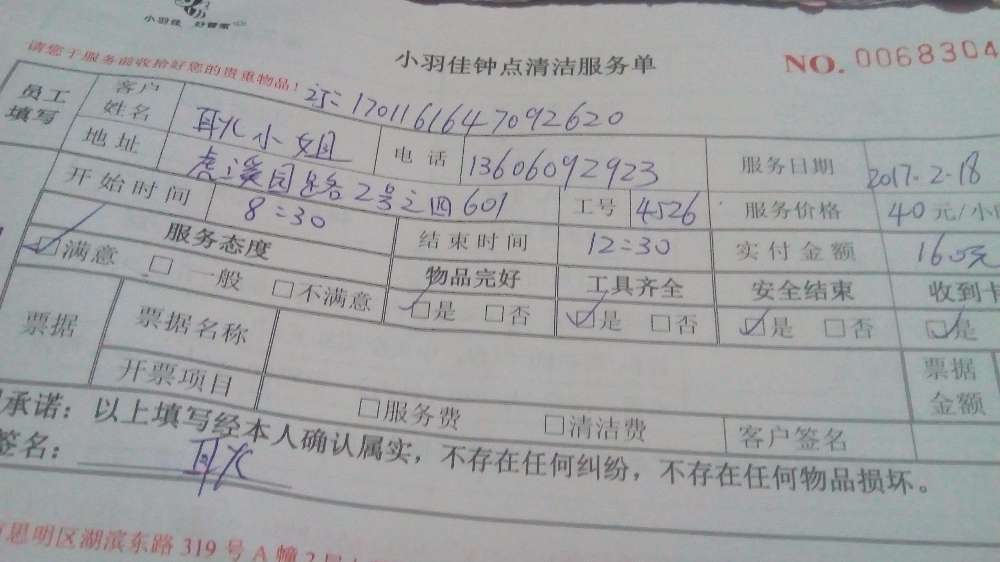 小羽佳 好管家
小羽佳钟点清洁服务单
NO. 0068304
请您于服务前收拾好您的贵重物品！
订：1701161647092620
员工填写
客户姓名 耿小姐 电话 13606092923 服务日期 2017.2.18
地址 虎溪园路2号之四601 工号 4526 服务价格 40元/小
开始时间 8:30 结束时间 12:30 实付金额 160元
服务态度 物品完好 工具齐全 安全结束 收到卡
☑满意 □一般 □不满意 ☑是 □否 ☑是 □否 ☑是 □否 ☑是
票据 票据名称 票据金额
开票项目 □服务费 □清洁费 客户签名
承诺：以上填写经本人确认属实，不存在任何纠纷，不存在任何物品损坏。
签名：耿
思明区湖滨东路319号A幢2